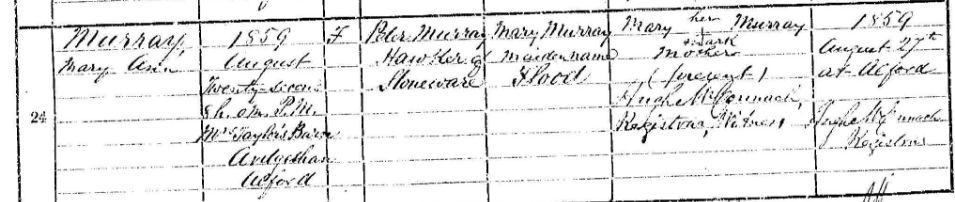 Murray,
Mary Ann
24
1859
August
Twenty-second
8 h. 0 m. P.M.
Mr Taylor's Barn
Ardgathan
Alford
F
Peter Murray
Hawker of
Stoneware
Mary Murray
maiden name
Flood
Mary her Murray
mark
mother
(present)
Hugh McConnach,
Registrar, Witness
1859
August 27th
at Alford
Hugh McConnach
Registrar